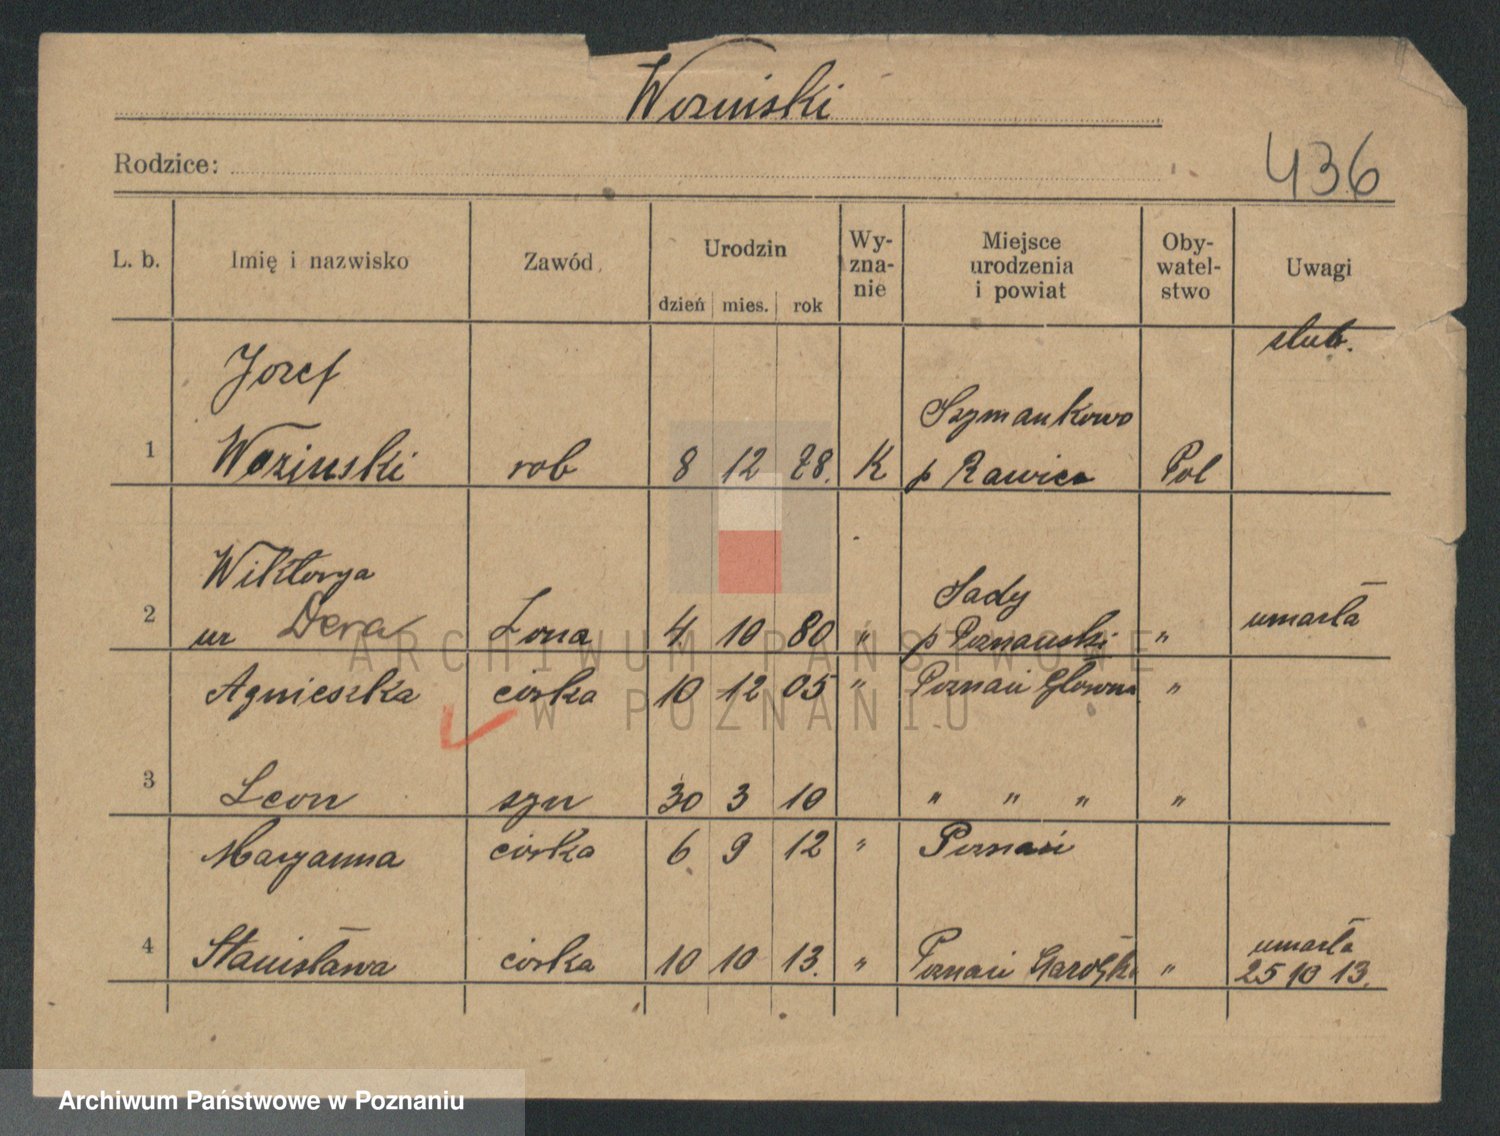 Wozinski
436
Rodzice:
L. b. Imię i nazwisko Zawód Urodzin dzień mies. rok Wy-zna-nie Miejsce urodzenia i powiat Oby-watel-stwo Uwagi
ślub.
Jozef
Szymankowo
1 Wozinski rob 8 12 78. K p Rawicz Pol
Wiktorya
Sady
2 ur Dera Żona 4 10 80 " p Poznański " umarła
Agnieszka córka 10 12 05 " Poznań Główna "
3 Leon syn 30 3 10 " " " "
Maryanna córka 6 9 12 " Poznań
umarła
4 Stanisława córka 10 10 13. " Poznań "
25 10 13.
ARCHIWUM PAŃSTWOWE
W POZNANIU
Archiwum Państwowe w Poznaniu